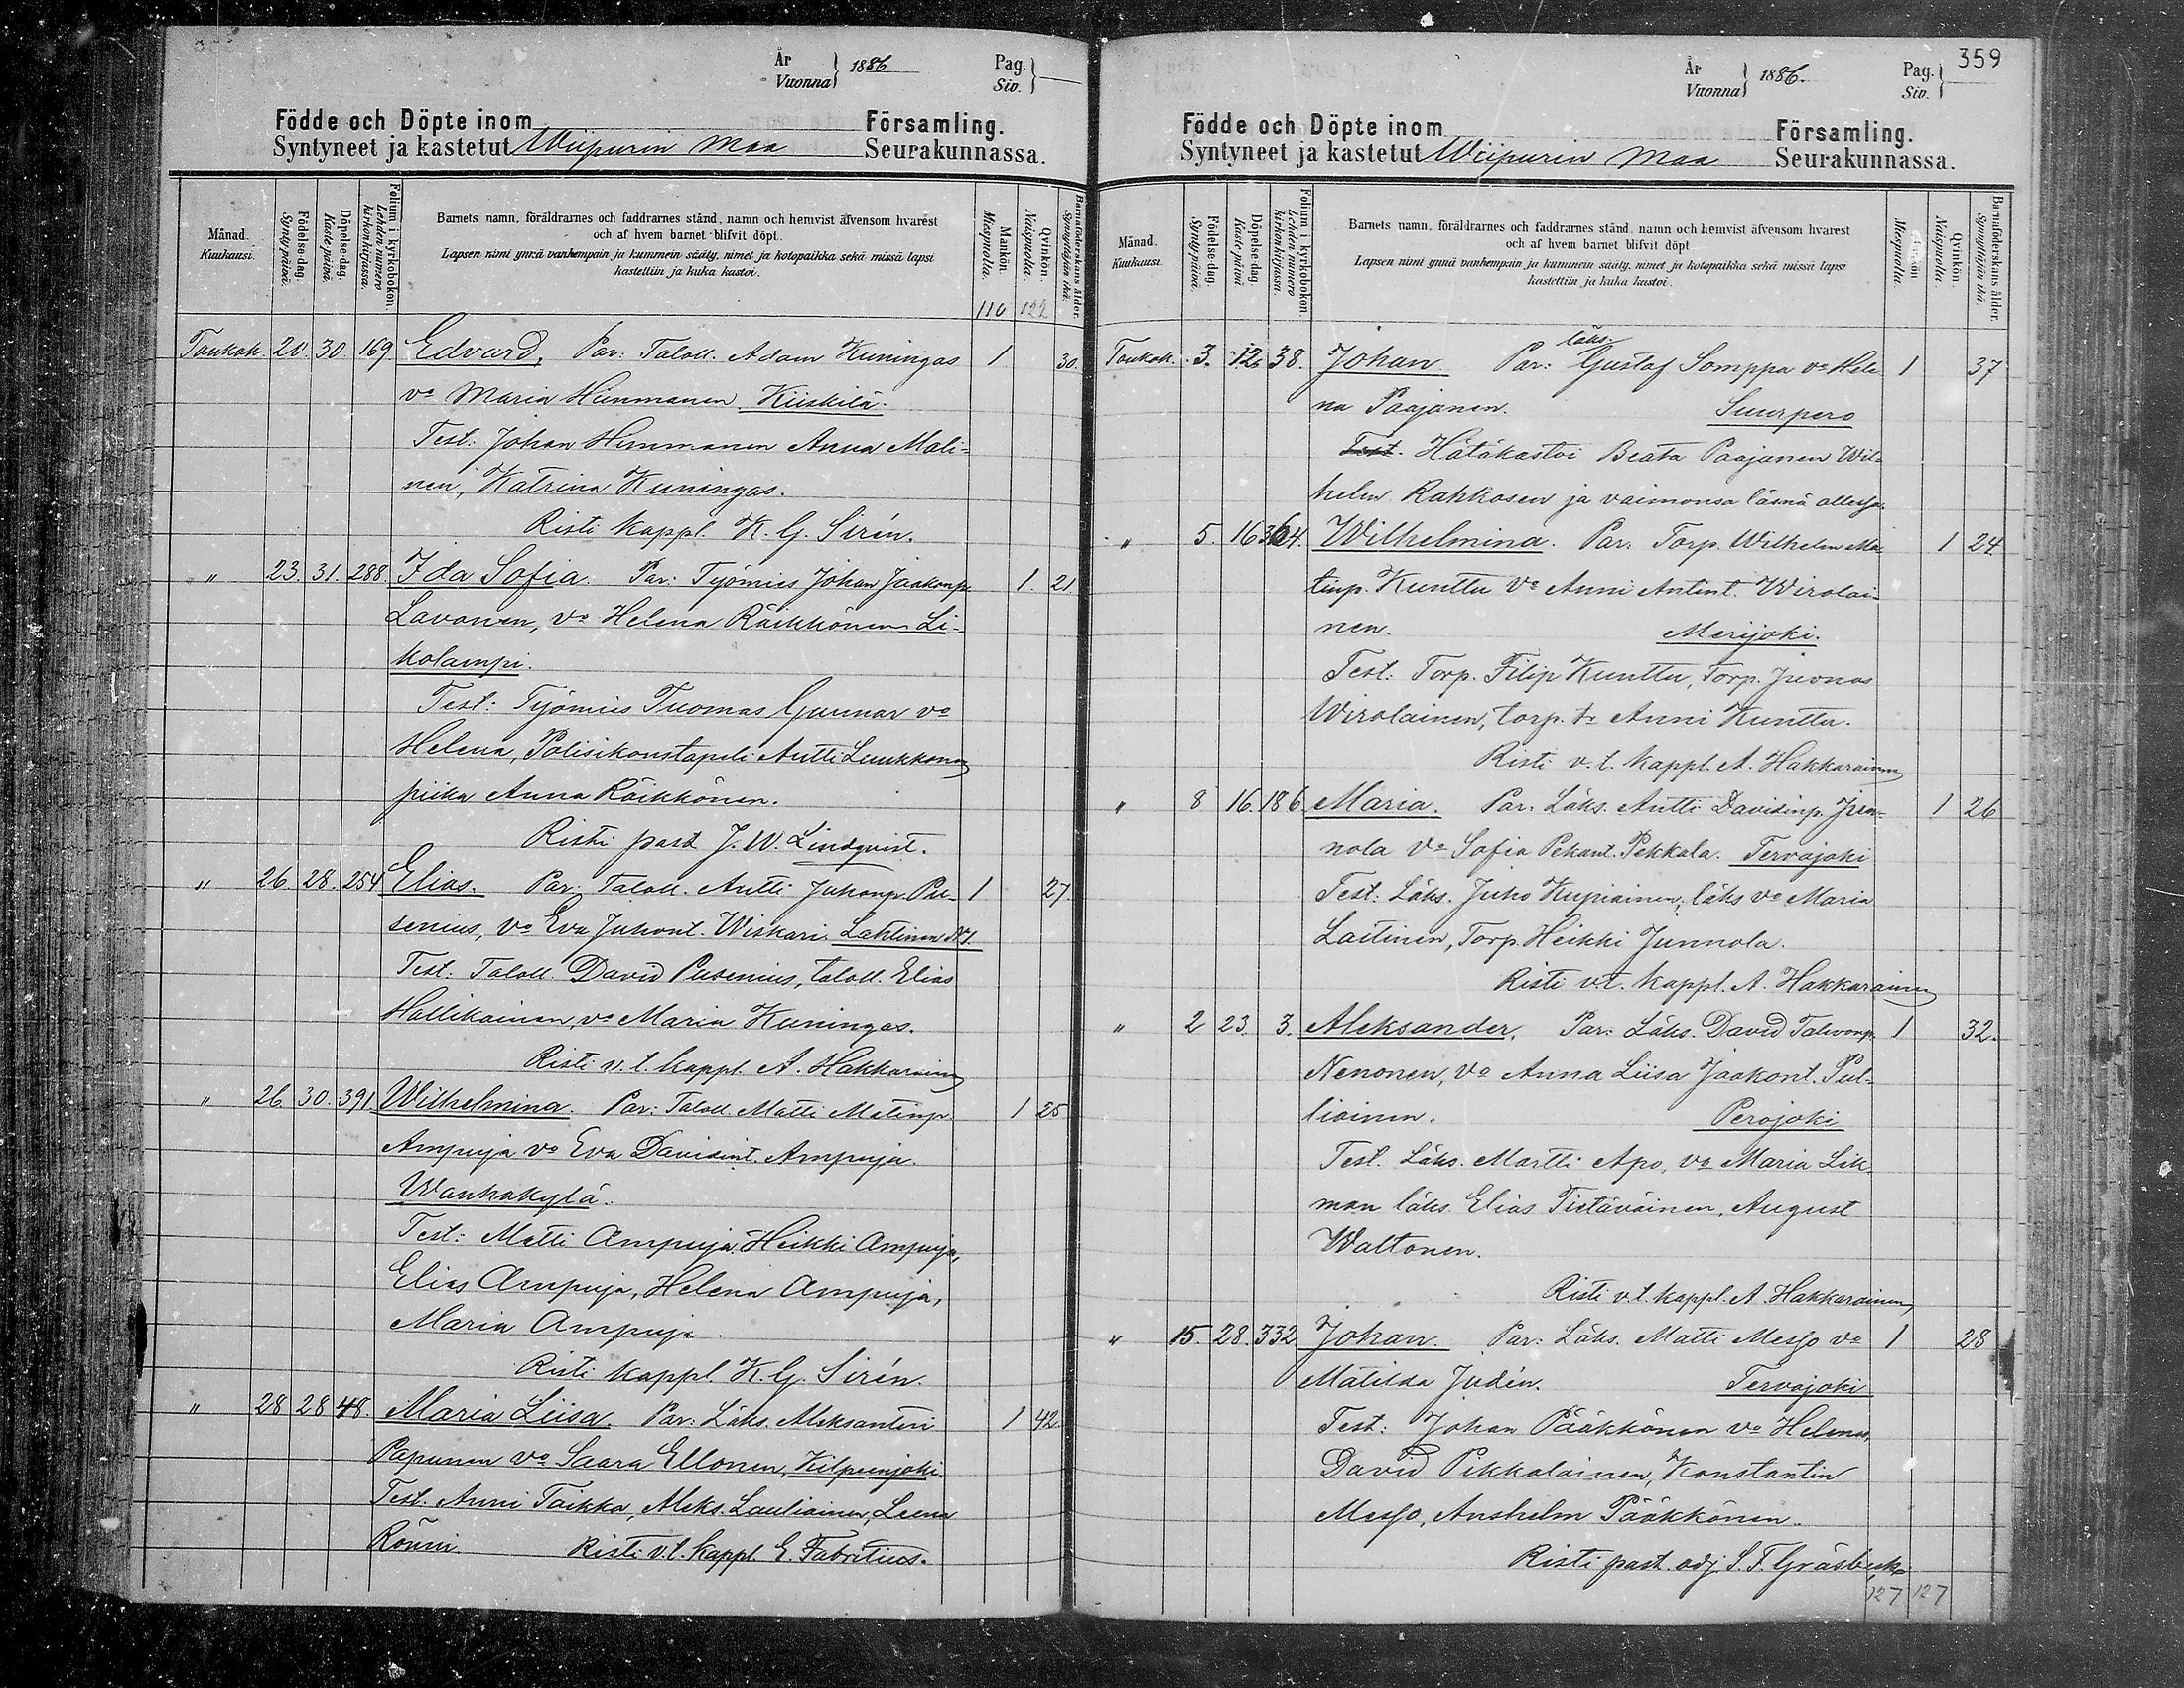 År
Vuonna } 1886
Pag.
Siv. }
Födde och Döpte inom Församling.
Syntyneet ja kastetut Wiipurin Maa Seurakunnassa.
Månad.
Kuukausi.
Födelse-dag.
Syntypäivä.
Döpelse-dag.
Kastepäivä.
Folium i kyrkobokon.
Lehden numero
kirkonkirjassa.
Barnets namn, föräldrarnes och faddrarnes stånd, namn och hemvist äfvensom hvarest
och af hvem barnet blifvit döpt.
Lapsen nimi ynnä vanhempain ja kummein sääty, nimet ja kotopaikka sekä missä lapsi
kastettiin ja kuka kastoi.
Mankön.
Miespuolta.
Qvinkön.
Naispuolta.
Barnaföderskans ålder.
Synnyttäjän ikä.
110 122
Toukok. 20 30 169 Edvard. Par: Taloll. Adam Kuningas 1 30.
vo Maria Hinmanen Kiiskilä.
Test: Johan Himmanen Anna Mali-
nen, Katrina Kuningas.
Risti kappl. K. G. Sirén.
" 23. 31. 288 Ida Sofia. Par: Työmies Johan Jaakonp. 1. 21
Lavonen, vo Helena Räikkönen Li-
kolampi.
Test: Työmies Tuomas Gunnar vo
Helena, Polisikonstapeli Antti Luukkonen
piika Anna Räikkönen.
Risti past J. W. Lindqvist.
" 26. 28. 254 Elias. Par: Taloll. Antti Juhonp. Pu- 1 27.
senius, vo Eva Juhont. Wiskari. Lahtinen
Test: Taloll. David Pusenius, taloll. Elias
Hallikainen, vo Maria Kuningas.
Risti v.t. kappl. A. Hakkarainen
" 26. 30. 391 Wilhelmina. Par: Taloll. Matti Matinp. 1 25
Ampuja vo Eva Davidint. Ampuja.
Wanhakylä.
Test: Matti Ampuja, Heikki Ampuja,
Elias Ampuja, Helena Ampuja,
Maria Ampuja.
Risti kappl. K. G. Sirén.
" 28 28 48. Maria Liisa. Par: Läks. Aleksanteri 1 42
Papunen vo Saara Ellonen, Kilpeenjoki.
Test. Anni Taikka, Aleks. Lauliainen, Leena
Rönni Risti v.t. kappl. E. Fabritius.
359
År
Vuonna } 1886.
Pag.
Siv. }
Födde och Döpte inom Församling.
Syntyneet ja kastetut Wiipurin Maa Seurakunnassa.
Månad.
Kuukausi.
Födelse-dag.
Syntypäivä.
Döpelse-dag.
Kastepäivä
Folium i kyrkobokon.
Lehden numero
kirkonkirjassa.
Barnets namn, föräldrarnes och faddrarnes stånd, namn och hemvist äfvensom hvarest
och af hvem barnet blifvit döpt
Lapsen nimi ynnä vanhempain ja kummein sääty, nimet ja kotopaikka sekä missä lapsi
kastettiin ja kuka kastoi.
Miespuolta.
Qvinkön.
Naispuolta.
Barnaföderskans ålder.
Synnyttäjän ikä.
läks.
Toukok. 3. 12. 38. Johan. Par: Gustaf Somppa vo Hele 1 37
na Paajanen. Suurpero
Test. Hätäkastoi Beata Paajanen Wil-
helm Rahkosen ja vaimonsa läsnä ollessa.
" 5. 16 364. Wilhelmina. Par: Torp. Wilhelm Ma- 1 24
tinp. Kunttu vo Anni Antint. Wirolai-
nen. Merijoki.
Test: Torp. Filip Kunttu, Torp. Juonas
Wirolainen, torp. tr Anni Kunttu.
Risti v.t. kappl. A. Hakkarainen
" 8 16. 186 Maria. Par. Läks. Antti Davidinp. Jun- 1 26
nola vo Sofia Pekant. Pekkala. Tervajoki
Test: Läks. Juho Kupiainen, läks vo Maria
Laitinen, Torp. Heikki Junnola.
Risti v.t. kappl. A. Hakkarainen
" 2 23. 3. Aleksander. Par: Läks. David Tahvonp. 1 32.
Nenonen, vo Anna Liisa Jaakont. Pul-
liainen. Perojoki
Test. Läks. Martti Apo, vo Maria Lik-
man läks. Elias Tietäväinen, August
Waltonen.
Risti v.t. kappl. A Hakkarainen
" 15. 28. 332 Johan. Par: Läks. Matti Messo vo 1 28
Matilda Judén. Tervajoki
Test: Johan Pääkkönen vo Helena,
David Pikkalainen, Konstantin
Messo, Anshelm Pääkkönen.
Risti past. adj. S. F. Gräsbeck
127 127